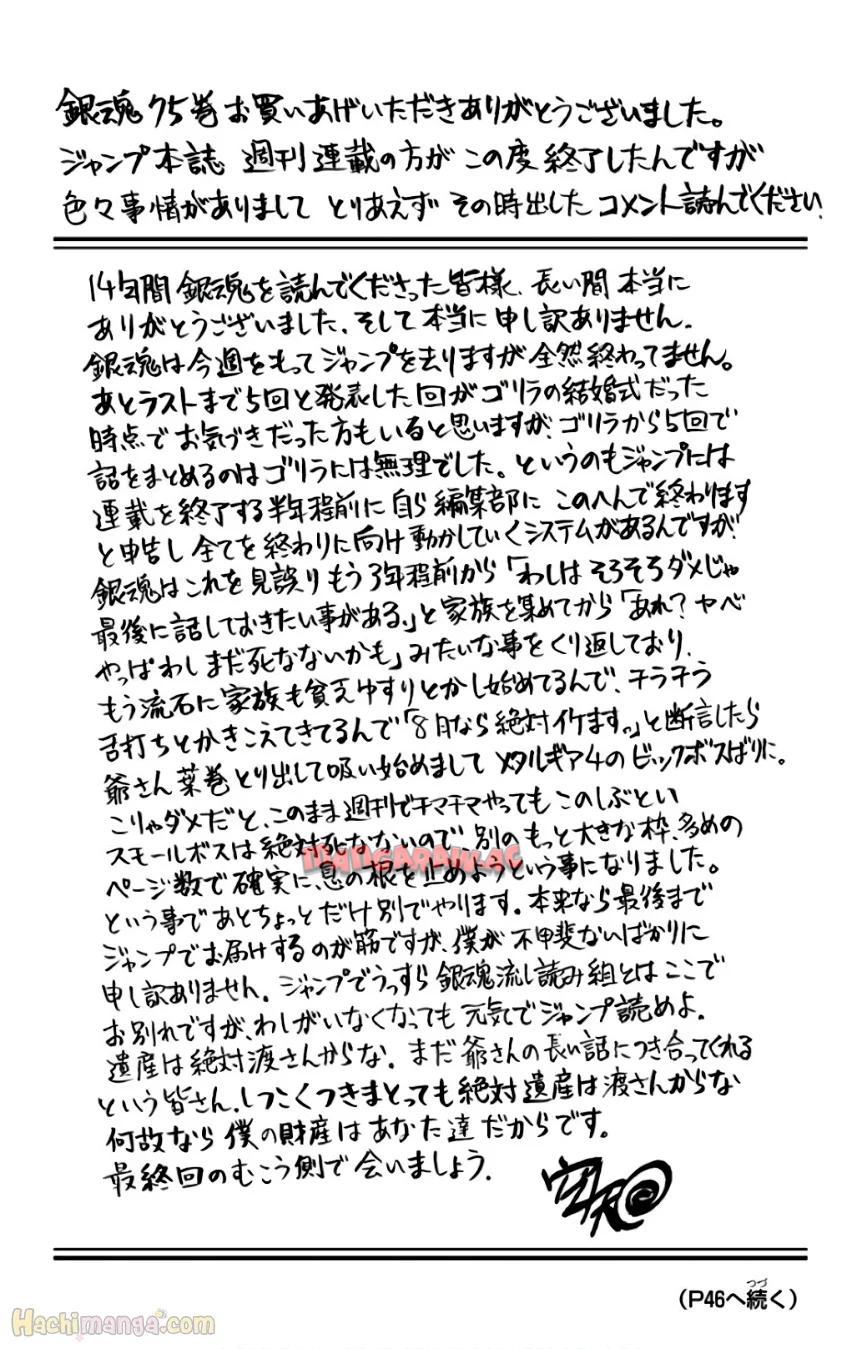 銀魂75巻お買いあげいただきありがとうございました。
ジャンプ本誌 週刊連載の方が この度終了したんですが
色々事情がありまして とりあえず その時出した コメント読んでください.
14年間銀魂を読んでくださった皆様、長い間 本当に
ありがとうございました、そして本当に申し訳ありません.
銀魂は今週をもってジャンプを去りますが全然終わってません。
あとラストまで5回と発表した回がゴリラの結婚式だった
時点でお気づきだった方もいると思いますが、ゴリラから5回で
話をまとめるのはゴリラには無理でした。というのもジャンプには
連載を終了する半年程前に自ら編集部に このへんで終わります
と申告し全てを終わりに向け動かしていくシステムがあるんですが
銀魂はこれを見誤りもう3年程前から「わしはそろそろダメじゃ
最後に話しておきたい事がある。」と家族を集めてから「あれ?ヤベ
やっぱわしまだ死なないかも」みたいな事をくり返しており、
もう流石に家族も貧乏ゆすりとかし始めてるんで、チラチラ
舌打ちとかきこえてきてるんで「8月なら絶対イケます。」と断言したら
爺さん葉巻とり出して吸い始めまして メタルギア4のビックボスばりに。
こりゃダメだと、このまま週刊でチマチマやってもこのしぶとい
スモールボスは絶対死なないので、別のもっと大きな枠、多めの
ページ数で確実に、息の根を止めようという事になりました。
という事であとちょっとだけ別でやります。本来なら最後まで
ジャンプでお届けするのが筋ですが、僕が不甲斐ないばかりに
申し訳ありません。ジャンプでうっすら銀魂流し読み組とはここで
お別れですが、わしがいなくなっても元気でジャンプ読めよ.
遺産は絶対渡さんからな. まだ爺さんの長い話につき合ってくれる
という皆さん、しつこくつきまとっても絶対遺産は渡さんからな
何故なら僕の財産はあなた達だからです。
最終回のむこう側で会いましょう.
MANGARAW.AC
つづ
(P46へ続く)
Hachimanga.com